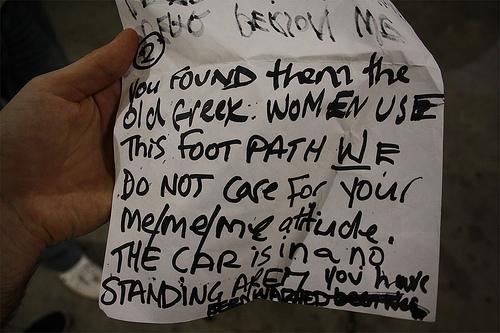 ME
②
YOU FOUND them the
old Greek. WOMEN USE
This FOOT PATH WE
DO NOT CARE For your
me/me/me attiude.
THE CAR is in a no
STANDING AREA you have
BEEN WARNED